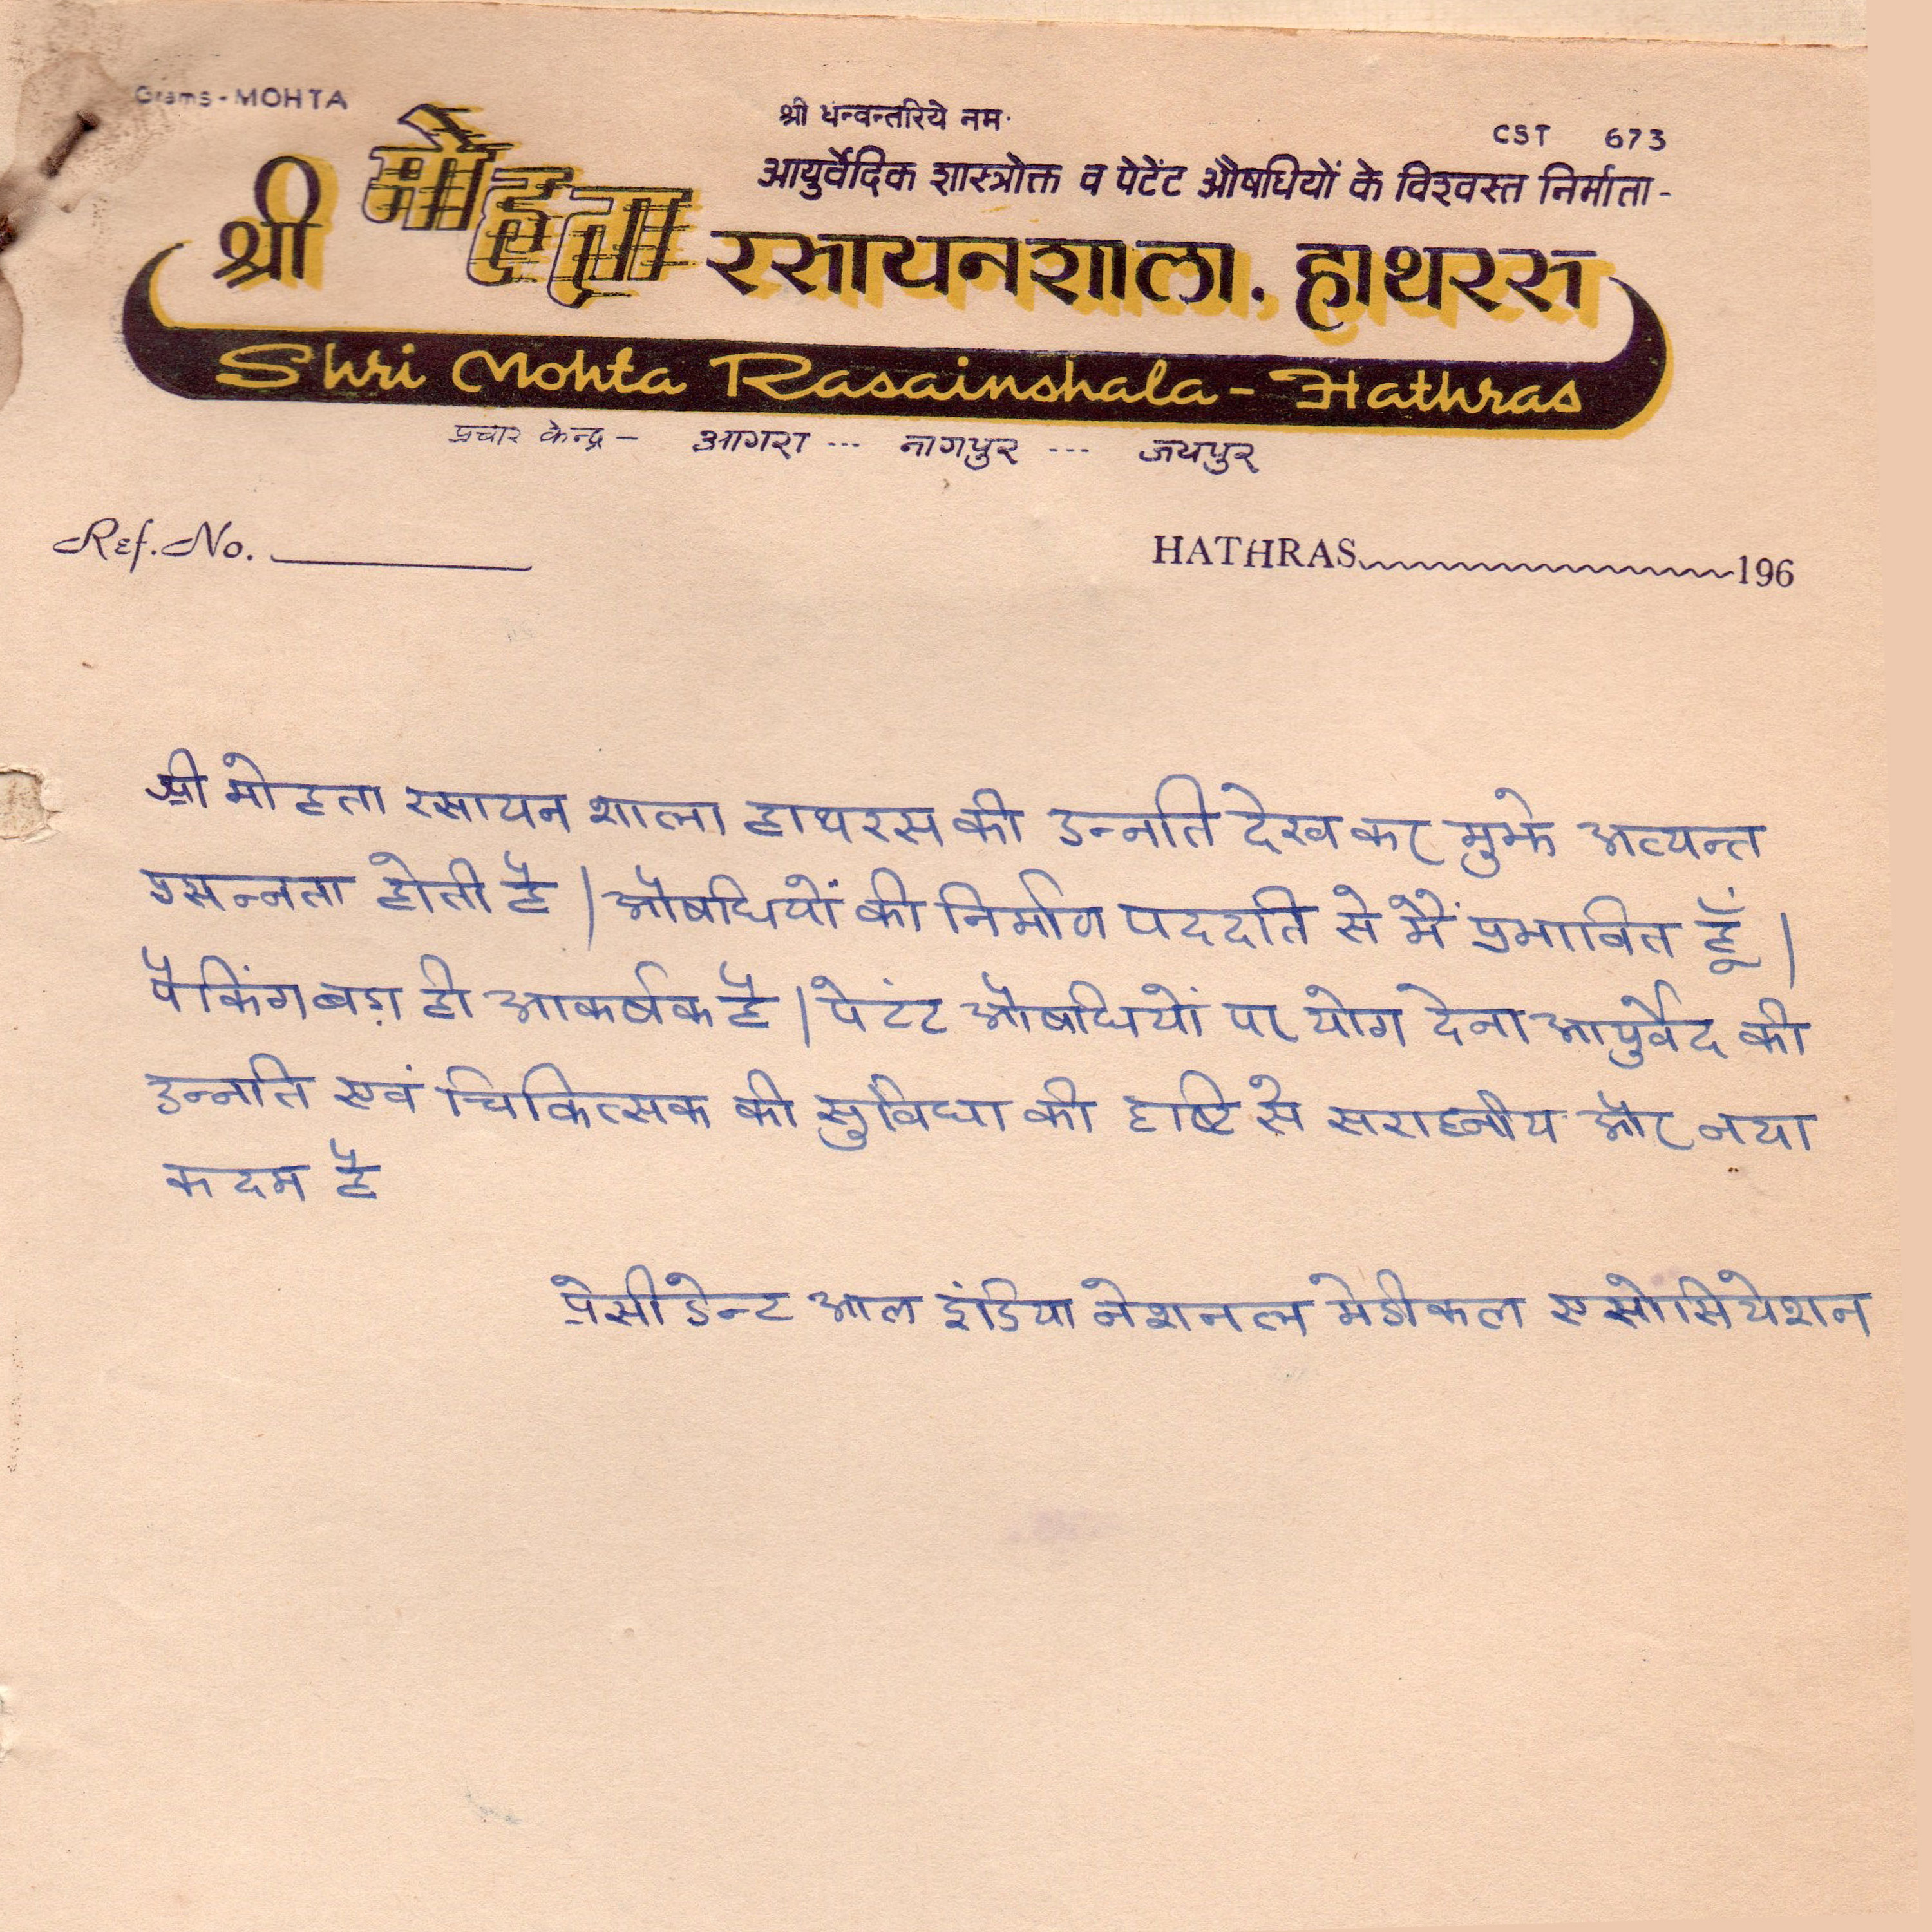 Grams - MOHTA
श्री धन्वन्तरिये नम·
CST 673
आयुर्वेदिक शास्त्रोक्त व पेटेंट औषधियों के विश्वस्त निर्माता -
श्री मोहता रसायनशाला. हाथरस
Shri Mohta Rasainshala - Hathras
प्रचार केन्द्र – आगरा --- नागपुर --- जयपुर
Ref. No.
HATHRAS 196
श्री मोहता रसायन शाला हाथरस की उन्नति देख कर मुझे अत्यन्त
प्रसन्नता होती है | औषधियों की निर्माण पददति से मैं प्रभावित हूँ |
पैकिंग बड़ा ही आकर्षक है | पेटंट औषधियों पर योग देना आयुर्वेद की
उन्नति एवं चिकित्सक की सुविधा की दृष्टि से सराहनीय और नया
कदम है
प्रेसीडेन्ट आल इंडिया नेशनल मेडीकल एसोसियेशन